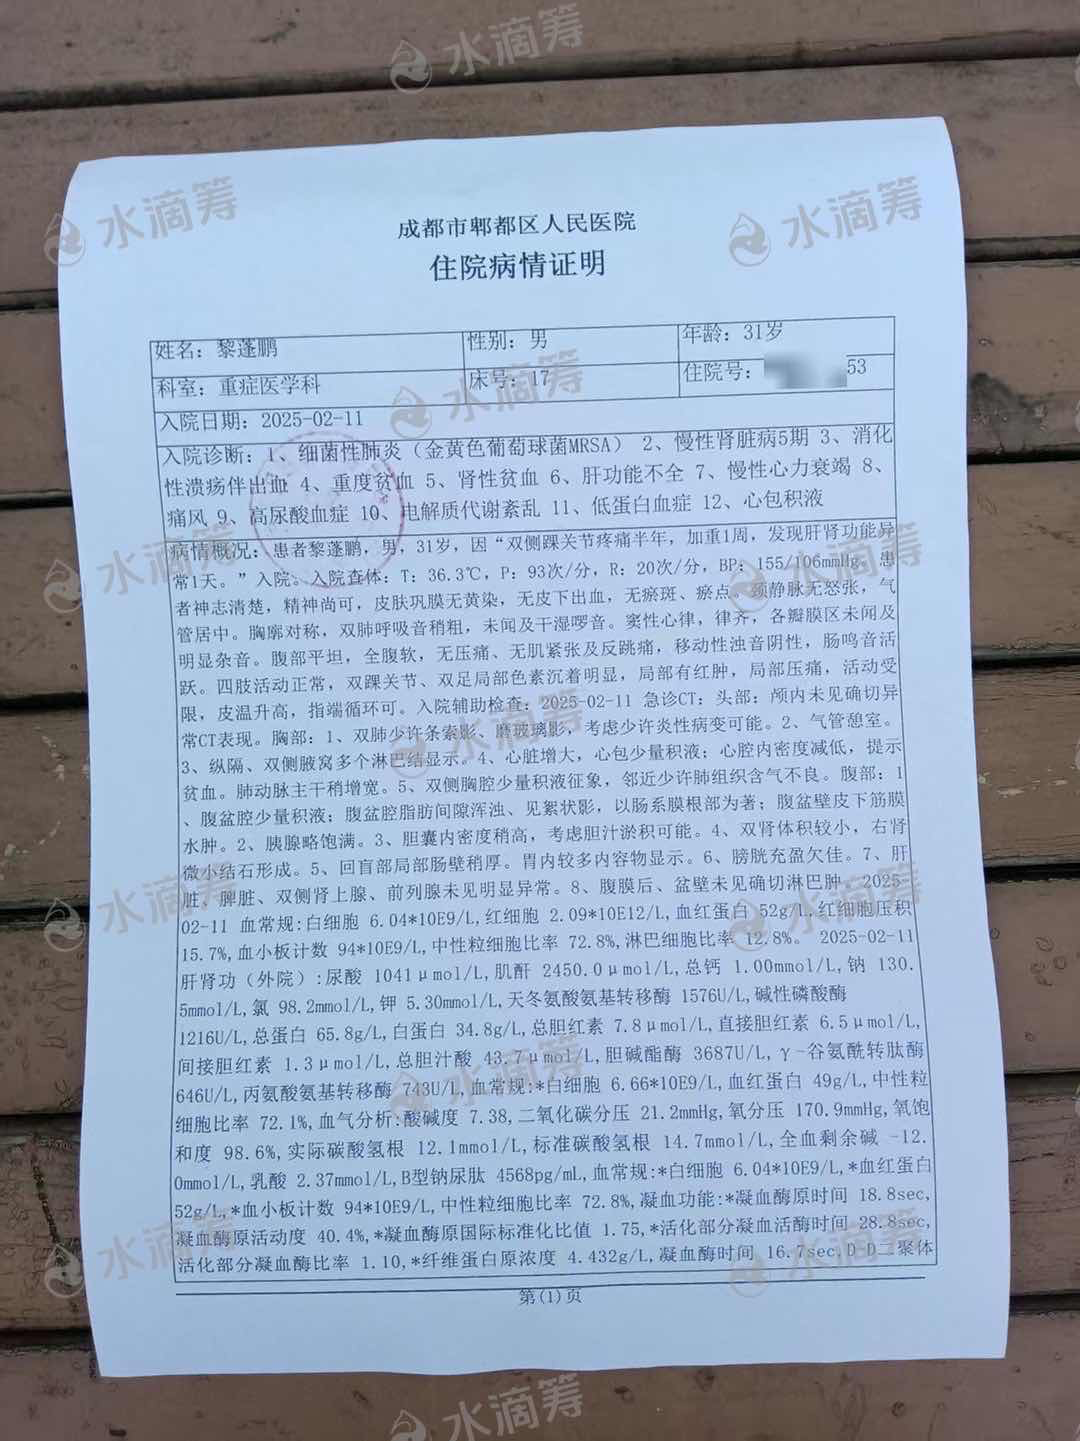 水滴筹
水滴筹
水滴筹
成都市郫都区人民医院
住院病情证明
姓名：黎蓬鹏
性别：男
年龄：31岁
科室：重症医学科
床号：17
住院号：
53
入院日期：2025-02-11
入院诊断：1、细菌性肺炎（金黄色葡萄球菌MRSA） 2、慢性肾脏病5期 3、消化
性溃疡伴出血 4、重度贫血 5、肾性贫血 6、肝功能不全 7、慢性心力衰竭 8、
痛风 9、高尿酸血症 10、电解质代谢紊乱 11、低蛋白血症 12、心包积液
病情概况：患者黎蓬鹏，男，31岁，因“双侧踝关节疼痛半年，加重1周，发现肝肾功能异
常1天。”入院。入院查体：T：36.3℃，P：93次/分，R：20次/分，BP：155/106mmHg。患
者神志清楚，精神尚可，皮肤巩膜无黄染，无皮下出血，无瘀斑、瘀点。颈静脉无怒张，气
管居中。胸廓对称，双肺呼吸音稍粗，未闻及干湿啰音。窦性心律，律齐，各瓣膜区未闻及
明显杂音。腹部平坦，全腹软，无压痛、无肌紧张及反跳痛，移动性浊音阴性，肠鸣音活
跃。四肢活动正常，双踝关节、双足局部色素沉着明显，局部有红肿，局部压痛，活动受
限，皮温升高，指端循环可。入院辅助检查：2025-02-11 急诊CT：头部：颅内未见确切异
常CT表现。胸部：1、双肺少许条索影、磨玻璃影，考虑少许炎性病变可能。2、气管憩室。
3、纵隔、双侧腋窝多个淋巴结显示。4、心脏增大，心包少量积液；心腔内密度减低，提示
贫血。肺动脉主干稍增宽。5、双侧胸腔少量积液征象，邻近少许肺组织含气不良。腹部：1
、腹盆腔少量积液；腹盆腔脂肪间隙浑浊、见絮状影，以肠系膜根部为著；腹盆壁皮下筋膜
水肿。2、胰腺略饱满。3、胆囊内密度稍高，考虑胆汁淤积可能。4、双肾体积较小，右肾
微小结石形成。5、回盲部局部肠壁稍厚。胃内较多内容物显示。6、膀胱充盈欠佳。7、肝
脏、脾脏、双侧肾上腺、前列腺未见明显异常。8、腹膜后、盆壁未见确切淋巴肿。2025-
02-11 血常规:白细胞 6.04*10E9/L,红细胞 2.09*10E12/L,血红蛋白 52g/L,红细胞压积
15.7%,血小板计数 94*10E9/L,中性粒细胞比率 72.8%,淋巴细胞比率 12.8%。 2025-02-11
肝肾功（外院）:尿酸 1041μmol/L,肌酐 2450.0μmol/L,总钙 1.00mmol/L,钠 130.
5mmol/L,氯 98.2mmol/L,钾 5.30mmol/L,天冬氨酸氨基转移酶 1576U/L,碱性磷酸酶
1216U/L,总蛋白 65.8g/L,白蛋白 34.8g/L,总胆红素 7.8μmol/L,直接胆红素 6.5μmol/L,
间接胆红素 1.3μmol/L,总胆汁酸 43.7μmol/L,胆碱酯酶 3687U/L,γ-谷氨酰转肽酶
646U/L,丙氨酸氨基转移酶 743U/L,血常规:*白细胞 6.66*10E9/L,血红蛋白 49g/L,中性粒
细胞比率 72.1%,血气分析:酸碱度 7.38,二氧化碳分压 21.2mmHg,氧分压 170.9mmHg,氧饱
和度 98.6%,实际碳酸氢根 12.1mmol/L,标准碳酸氢根 14.7mmol/L,全血剩余碱 -12.
0mmol/L,乳酸 2.37mmol/L,B型钠尿肽 4568pg/mL,血常规:*白细胞 6.04*10E9/L,*血红蛋白
52g/L,*血小板计数 94*10E9/L,中性粒细胞比率 72.8%,凝血功能:*凝血酶原时间 18.8sec,
凝血酶原活动度 40.4%,*凝血酶原国际标准化比值 1.75,*活化部分凝血活酶时间 28.8sec,
活化部分凝血酶比率 1.10,*纤维蛋白原浓度 4.432g/L,凝血酶时间 16.7sec,D-D二聚体
第(1)页
水滴筹
水滴筹
水滴筹
水滴筹
水滴筹
水滴筹
水滴筹
水滴筹
水滴筹
水滴筹
水滴筹